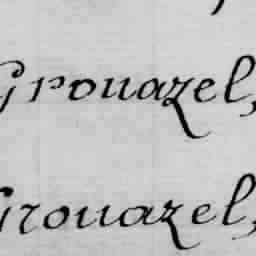 Grouazel,
Grouazel,